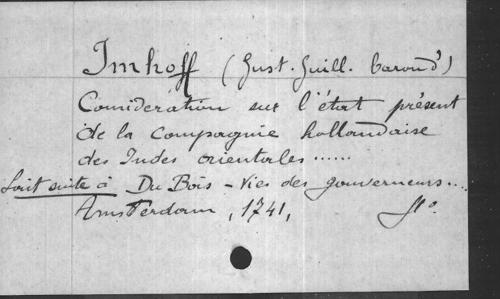 Imhoff (Gust. Guill. baron d')
Considération sur l'état présent
de la compagnie hollandaise
des Indes orientales ......
fait suite à Du Bois - Vies des gouverneurs...
Amsterdam, 1741, fo.